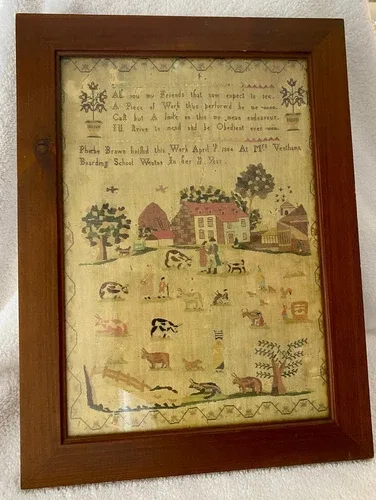 All you my Friends that now expect to see.
A Piece of Work thus perform'd by me
Cast but A Smile on this my mean endeavour.
I'll Strive to mend and be Obedient ever
Phebe Brown finished this Work April At Mrs
Boarding School Weston In her 11 Year